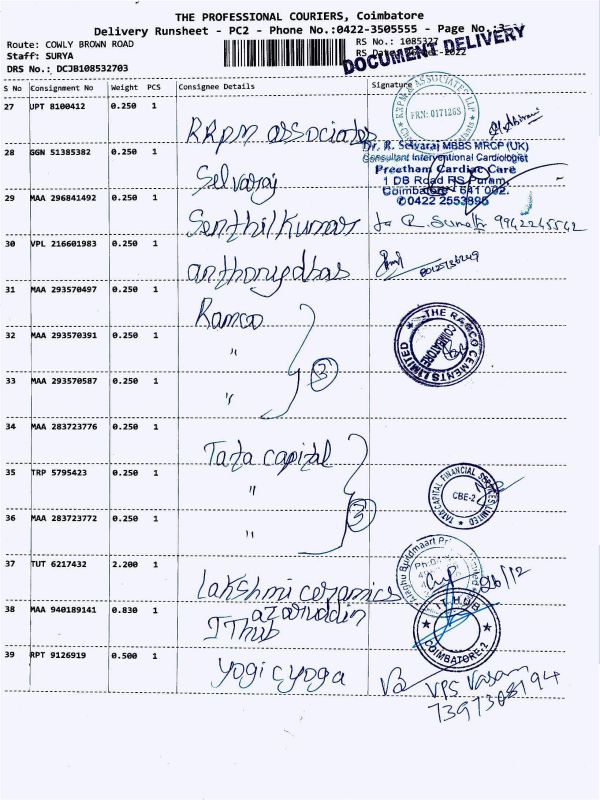 THE PROFESSIONAL COURIERS, Coimbatore
Delivery Runsheet - PC2 - Phone No.:0422-3505555 - Page No.:3
Route: COWLY BROWN ROAD
RS No.: 1085327
Staff: SURYA
DOCUMENT DELIVERY
DRS No.: DCJB108532703
S No Consignment No Weight PCS Consignee Details Signature
27 UPT 8100412 0.250 1 RRPM associates
FRN: 017126S
28 GGN 51385382 0.250 1 Selvaraj
Dr. R. Selvaraj MBBS MRCP (UK)
Consultant Interventional Cardiologist
Preetham Cardiac Care
1 DB Road RS Puram,
Coimbatore - 641 002.
✆0422 2553895
29 MAA 296841492 0.250 1 Senthil Kumar
9942245542
30 VPL 216601983 0.250 1 anthonydhas
31 MAA 293570497 0.250 1 Ramco
THE RAMCO CEMENTS LIMITED
COIMBATORE
32 MAA 293570391 0.250 1 "
33 MAA 293570587 0.250 1 "
3
34 MAA 283723776 0.250 1 Tata capital
35 TRP 5795423 0.250 1 "
TATA CAPITAL FINANCIAL SERVICES LIMITED
CBE-2
36 MAA 283723772 0.250 1 "
3
37 TUT 6217432 2.200 1 Lakshmi ceramics
26/12
azaruddin
38 MAA 940189141 0.830 1 IThub
IT HUB
COIMBATORE-2
39 RPT 9126919 0.500 1 yogicyoga
VPS Vasan
7397308194